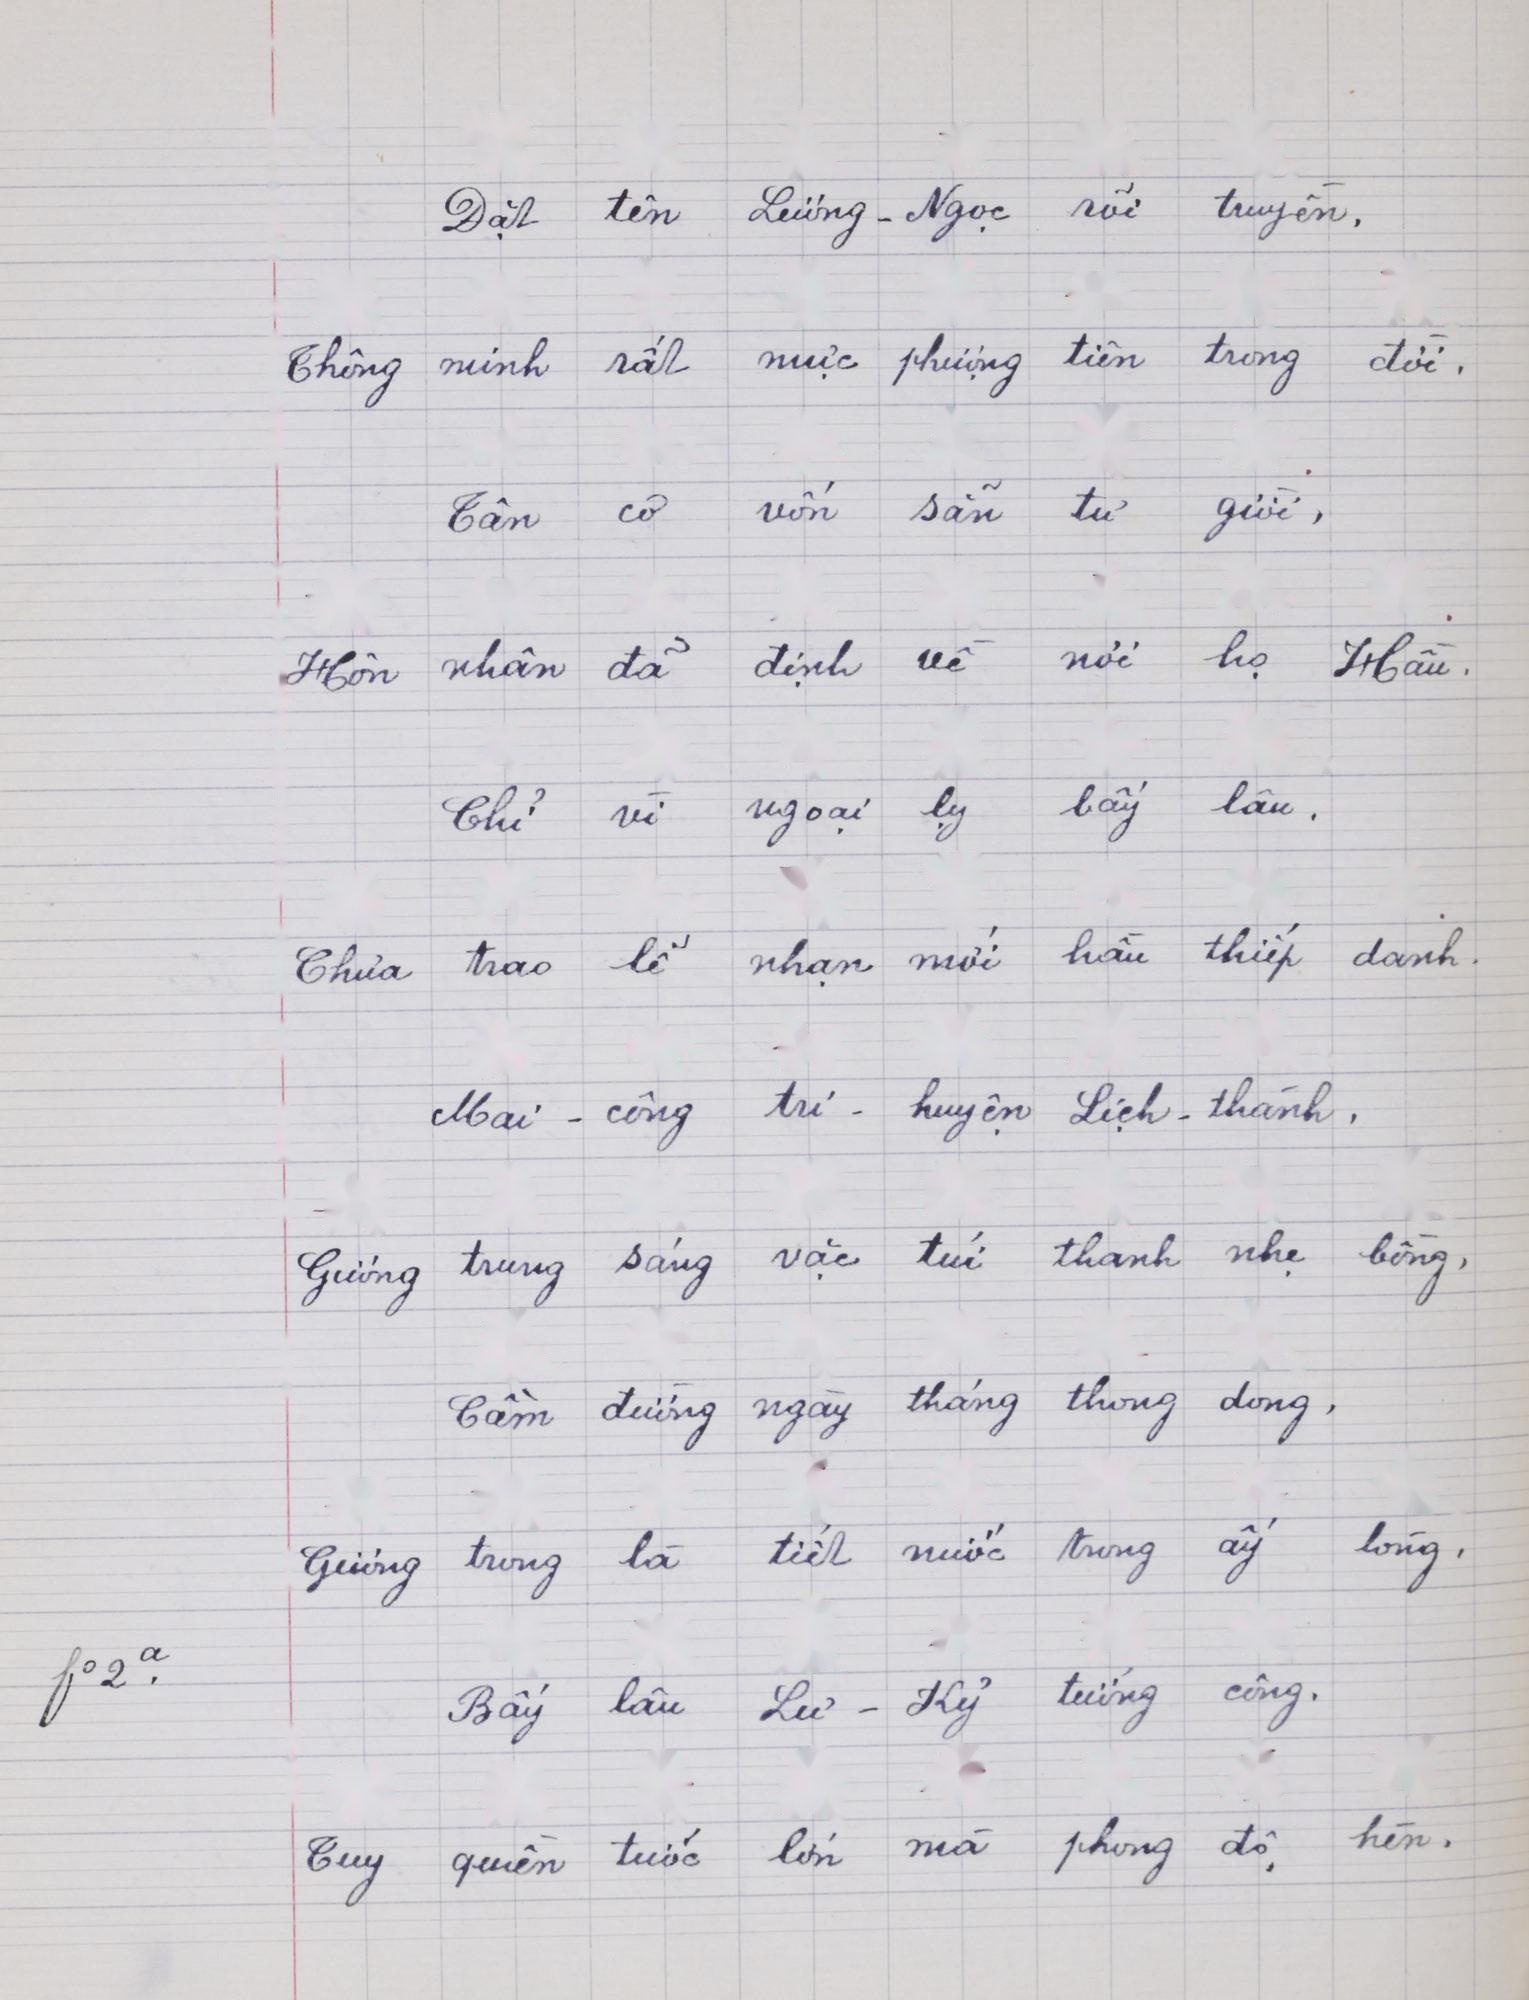 Đặt tên Lương-Ngọc rồi truyền,
Thông minh rất mực phượng tiên trong đời.
Tân cô vốn sẵn tư giời,
Hôn nhân đã định về nơi họ Hầu.
Chỉ vì ngoại lỵ bấy lâu,
Chưa trao lễ nhạn mới hầu thiếp danh.
Mai-công tri-huyện Lịch-thành,
Gương trung sáng vặc túi thanh nhẹ bồng,
Cầm đường ngày tháng thong dong,
Gương trong là tiết nước trong ấy lòng,
fº 2ª.
Bấy lâu Lư-Kỷ tướng công.
Tuy quyền tước lớn mà phong độ hèn.